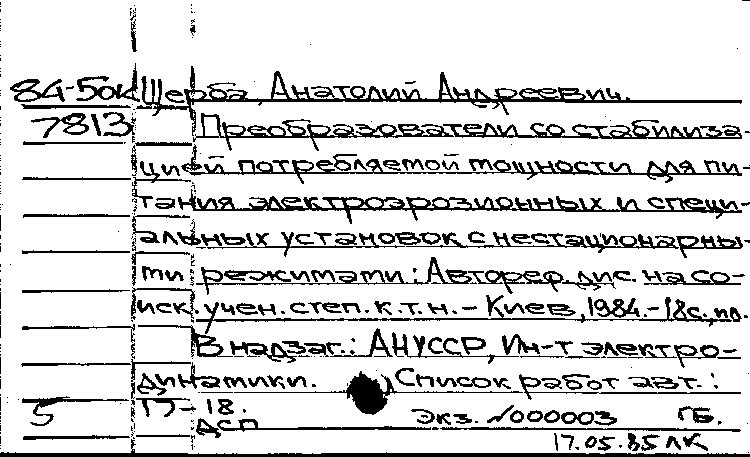 84-50к Щерба, Анатолий Андреевич.
7813 Преобразователи со стабилиза-
цией потребляемой мощности для пи-
тания электроэрозионных и специ-
альных установок с нестационарны-
ми режимами: Автореф. дис. на со-
иск. учен. степ. к.т.н. - Киев, 1984.-18с., ил.
В надзаг.: АНУССР, Ин-т электро-
динамики. Список работ авт.:
5 17-18.
ДСП Экз. №000003 ГБ.
17.05.85 ЛК